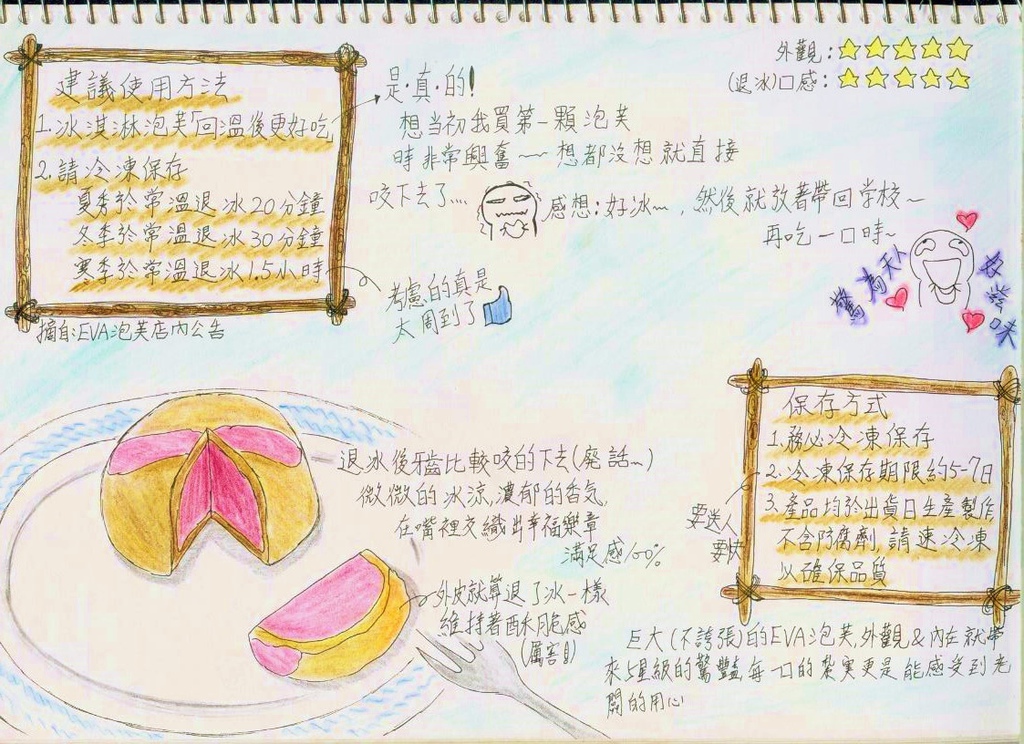 建議使用方法
1.冰淇淋泡芙「回溫後更好吃」
2.請冷凍保存
夏季於常溫退冰20分鐘
冬季於常溫退冰30分鐘
寒季於常溫退冰1.5小時
摘自:EVA泡芙店內公告
是·真·的!
想當初我買第一顆泡芙
時非常興奮~~想都沒想就直接
咬下去了....
感想:好冰~,然後就放著帶回学校~
再吃一口時~
考慮的真是
太周到了
外觀:☆☆☆☆☆
(退冰)口感:☆☆☆☆☆
驚為天人
的美味
退冰後牙齒比較咬的下去(廢話~)
微微的冰涼,濃郁的香氣,
在嘴裡交織出幸福樂章
滿足感100%
外皮就算退了冰一樣
維持著酥脆感
(厲害!!)
保存方式
1.務必冷凍保存
2.冷凍保存期限約5-7日
3.產品均於出貨日生產製作
不含防腐劑,請速冷凍
以確保品質
要送人
要快
巨大(不誇張)的EVA泡芙,外觀&內在就帶
來5星級的驚豔,每一口的紮實更是能感受到老
闆的用心